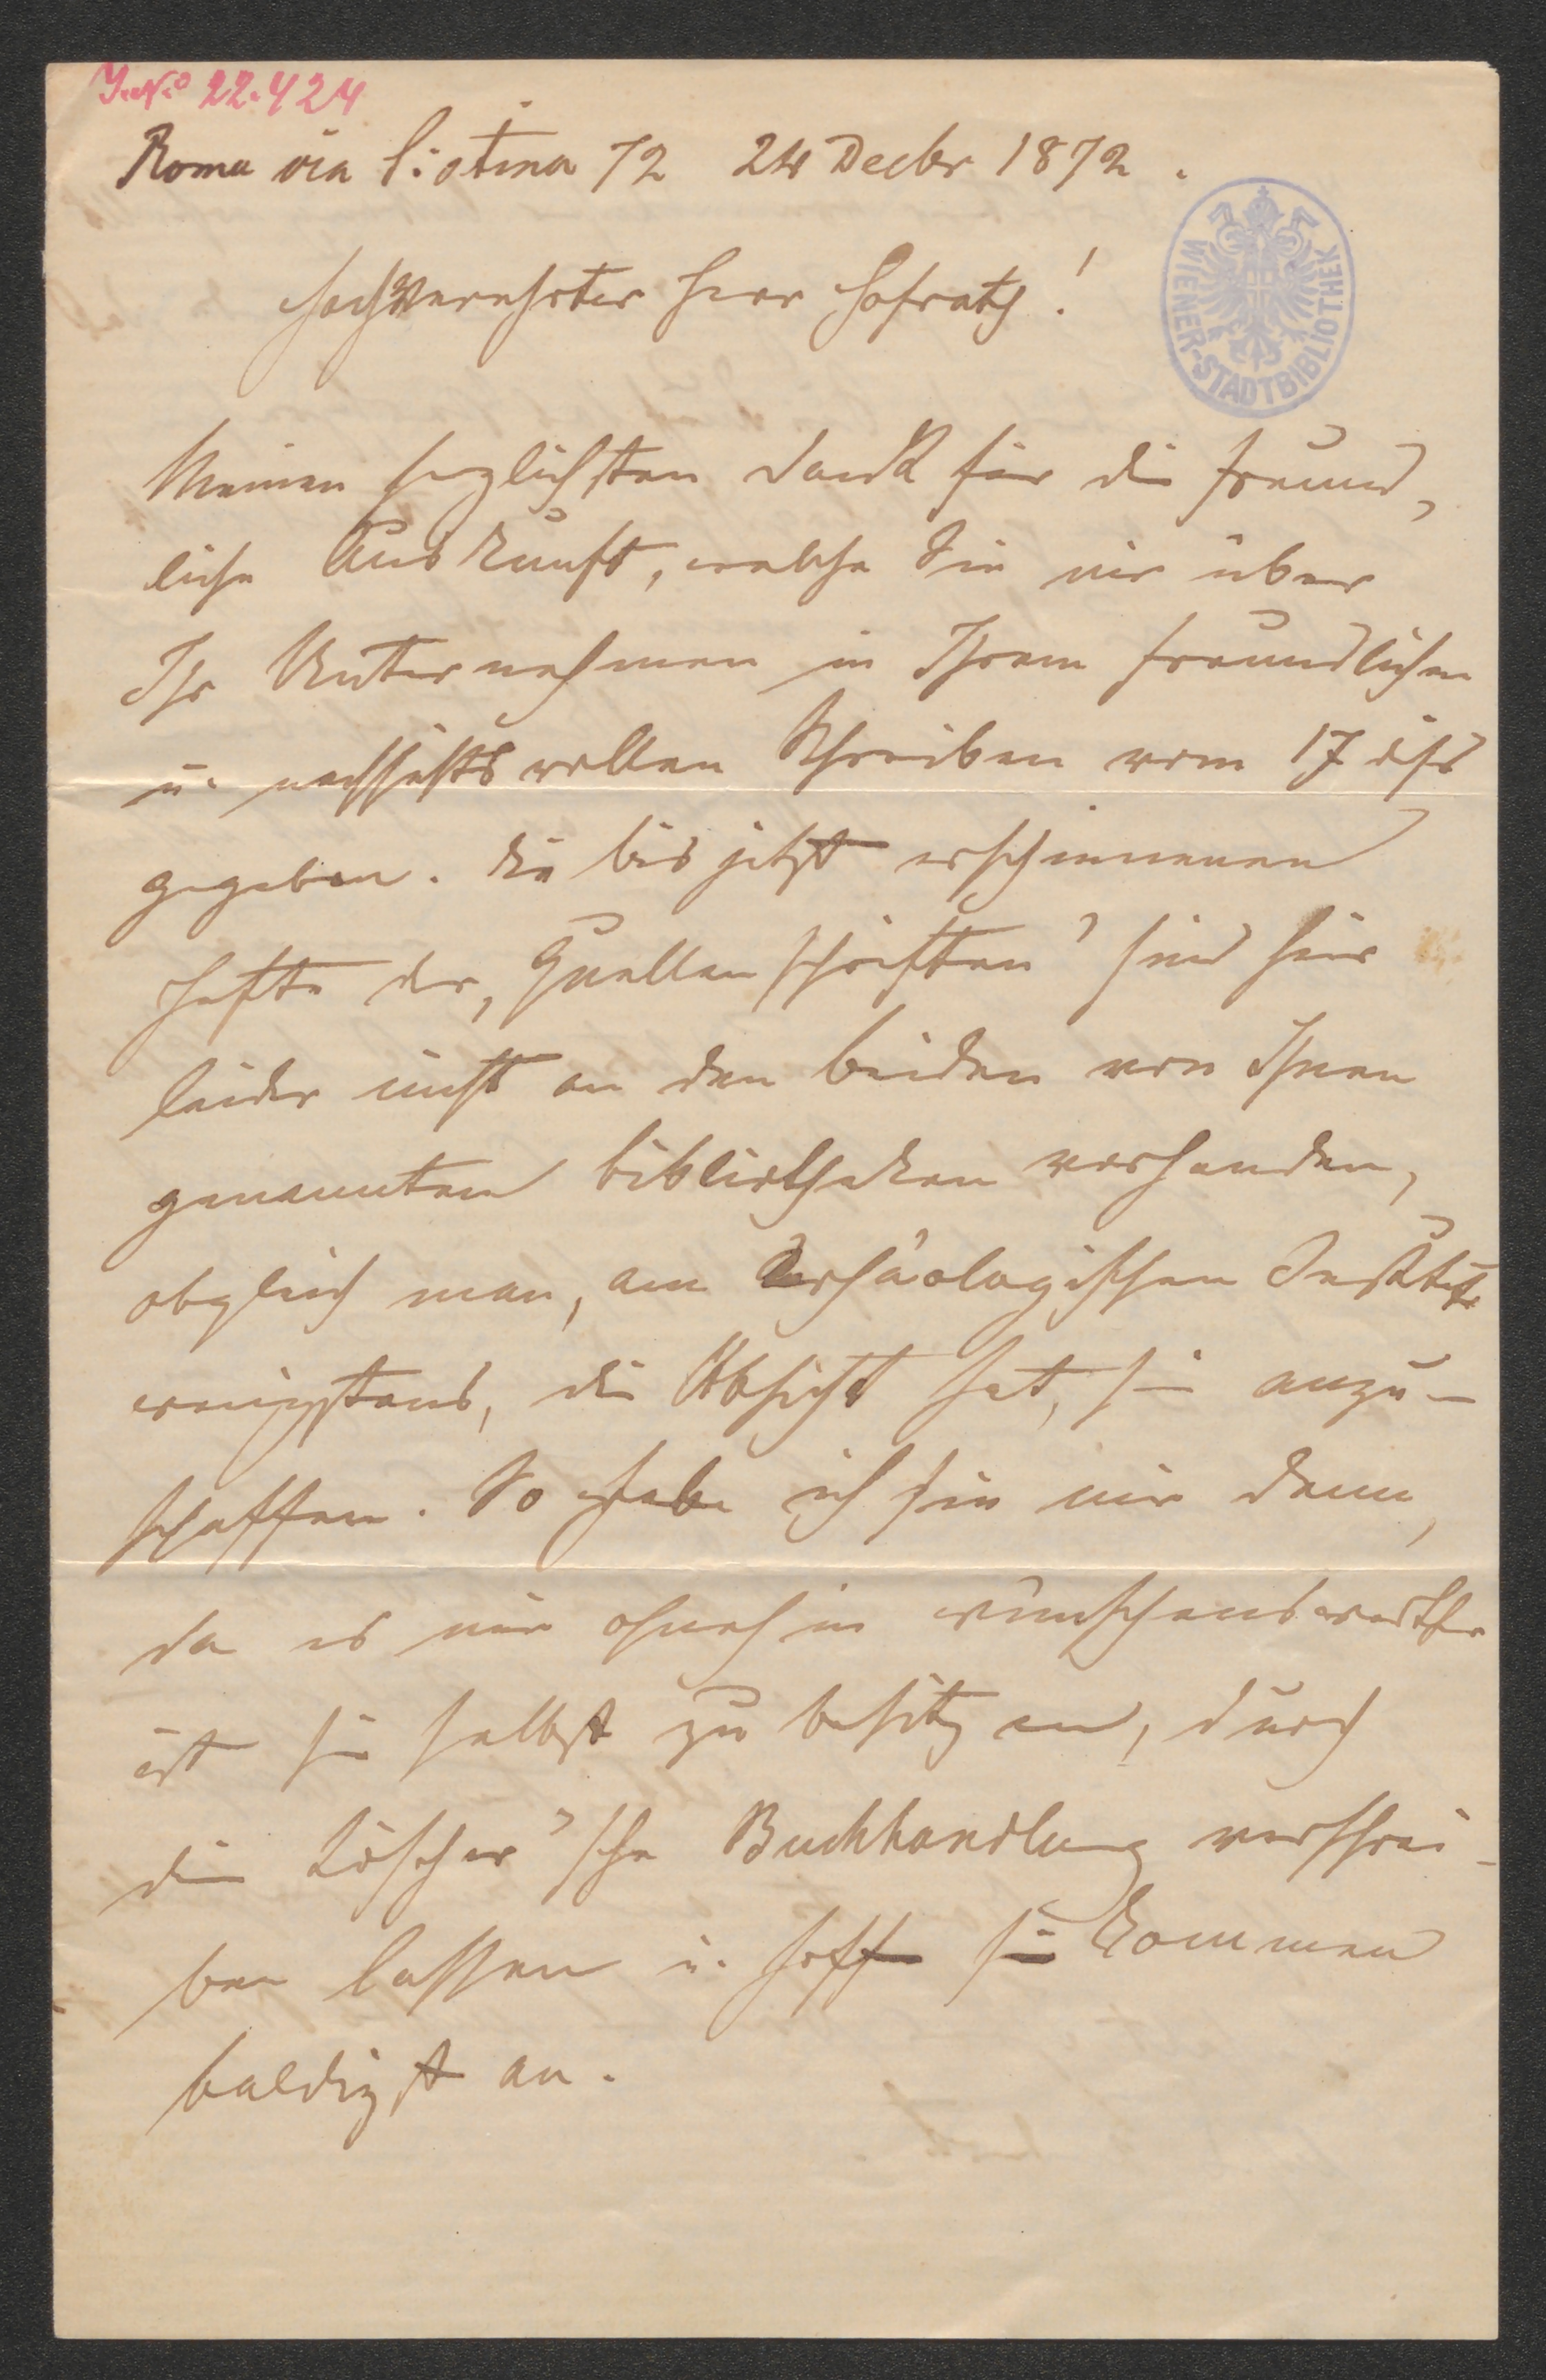 J.N° 22.424
Roma via Sistina 72 24 Decbr 1872.
Hochverehrter Herr Hofrath!
WIENER-STADTBIBLIOTHEK
Meinen herzlichsten Dank für die freund,
liche Auskunft, welche Sie mir über
Ihr Unternehmen in Ihrem freundlichen
u. nachsichtsvollen Schreiben vom 17 dss
gegeben. Die bis jetzt erschienenen
Hefte der „Quellenschriften" sind hier
leider nicht an den beiden von Ihnen
genannten Bibliotheken vorhanden,
obgleich man, am Archäologischen Institute
wenigstens, die Absicht hat, sie anzu-
schaffen. So habe ich sie mir denn,
da es mir ohnehin wünschenswerther
ist sie selbst zu besitzen, durch
die Löscher'sche Buchhandlung verschrei-
ben lassen u. hoffe sie kommen
baldigst an.